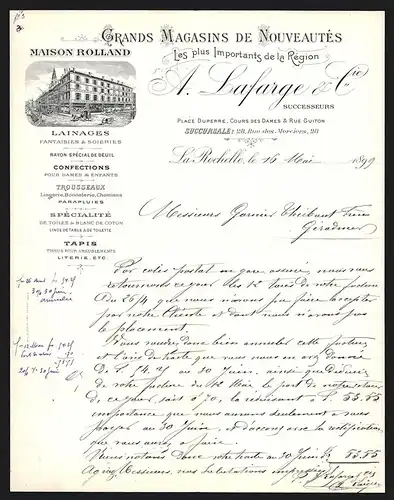 GRANDS MAGASINS DE NOUVEAUTÉS
MAISON ROLLAND
Les plus Importants de la Région
A. Lafarge & Cie
SUCCESSEURS
PLACE DUPERRÉ, COURS DES DAMES & RUE GUITON
SUCCURSALE: 28, Rue des Merciers, 28
LAINAGES
FANTAISIES & SOIERIES
RAYON SPÉCIAL DE DEUIL
CONFECTIONS
POUR DAMES & ENFANTS
TROUSSEAUX
Lingerie, Bonneterie, Chemises
PARAPLUIES
SPÉCIALITÉ
DE TOILES & BLANC DE COTON
LINGE DE TABLE & DE TOILETTE
TAPIS
TISSUS POUR AMEUBLEMENTS
LITERIE, ETC.
La Rochelle, le 16 Mai 1899
Messieurs Garnier Thiébaut Frères
Gérardmer
Par colis postal en gare assuré, nous vous
retournons ce jour les 12 de votre facture
du 26/4 que nous n'avons pu faire accepter
par notre Cliente et dont nous n'avons pas
le placement.
Vous voudrez donc bien annuler cette facture
et l'avis de traite que vous nous en avez donné
de F. 54.25 au 30 Juin, ainsi que déduire
de votre facture du 12 Mai le port de notre
de ce jour, soit 0,70, la réduisant à F. 55.85
importance que nous aurons seulement à vous
payer au 30 Juin, et d'accord avec la rectification
que vous aurez à faire.
Nous notons donc votre traite au 30 Juin F. 55.85
Agréez Messieurs, nos salutations empressées